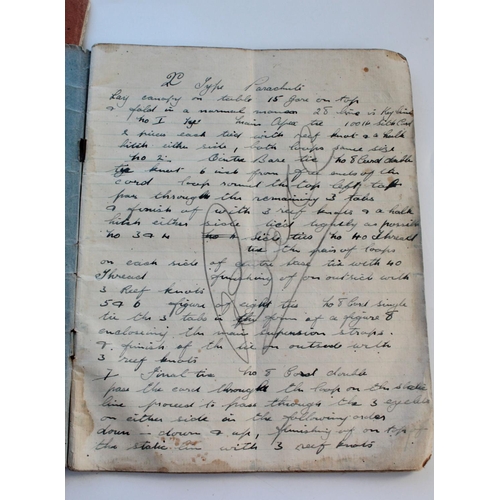 Type Parachute
Lay canopy on table 15 Gore on top
& fold in a normal manner 28 line is Key line
No. 1 Centre Apex tie 100 lb Silk Cord
2 pieces each tied with reef knot & a half
hitch either side, both loops same size
No 2 Centre Base tie No 8 Cord double
knot 6 inch from free ends of the
cord loop round the top left tab
pass through the remaining 3 tabs
& finish of with 3 reef knots & a half
hitch either side tied loosely as possible
No 3 & 4 Side ties No 40 Thread
tie the pair of loops
on each side of centre base tie with 40
Thread finishing of on outside with
3 Reef knots
5 & 6 figure of eight ties No 8 Cord single
tie the 3 tabs in the form of a figure 8
enclosing the main suspension straps.
& finish of the tie on outside with
3 reef knots
7 Final tie No 8 Cord double
pass the cord through the loop on the static
line proceed to pass through the 3 eyelets
on either side in the following order
down - down & up, finishing of on top of
the static line with 3 reef knots